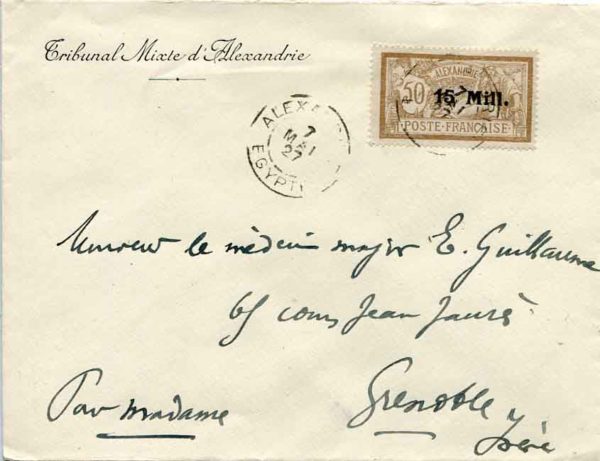 Tribunal Mixte d'Alexandrie
ALEXANDRIE
50 15 Mill.
POSTE FRANÇAISE
7
MAI
27
EGYPTE
Monsieur le médecin major E. Guillaume
65 cours Jean Jaurès
Par madame
Grenoble
Isère